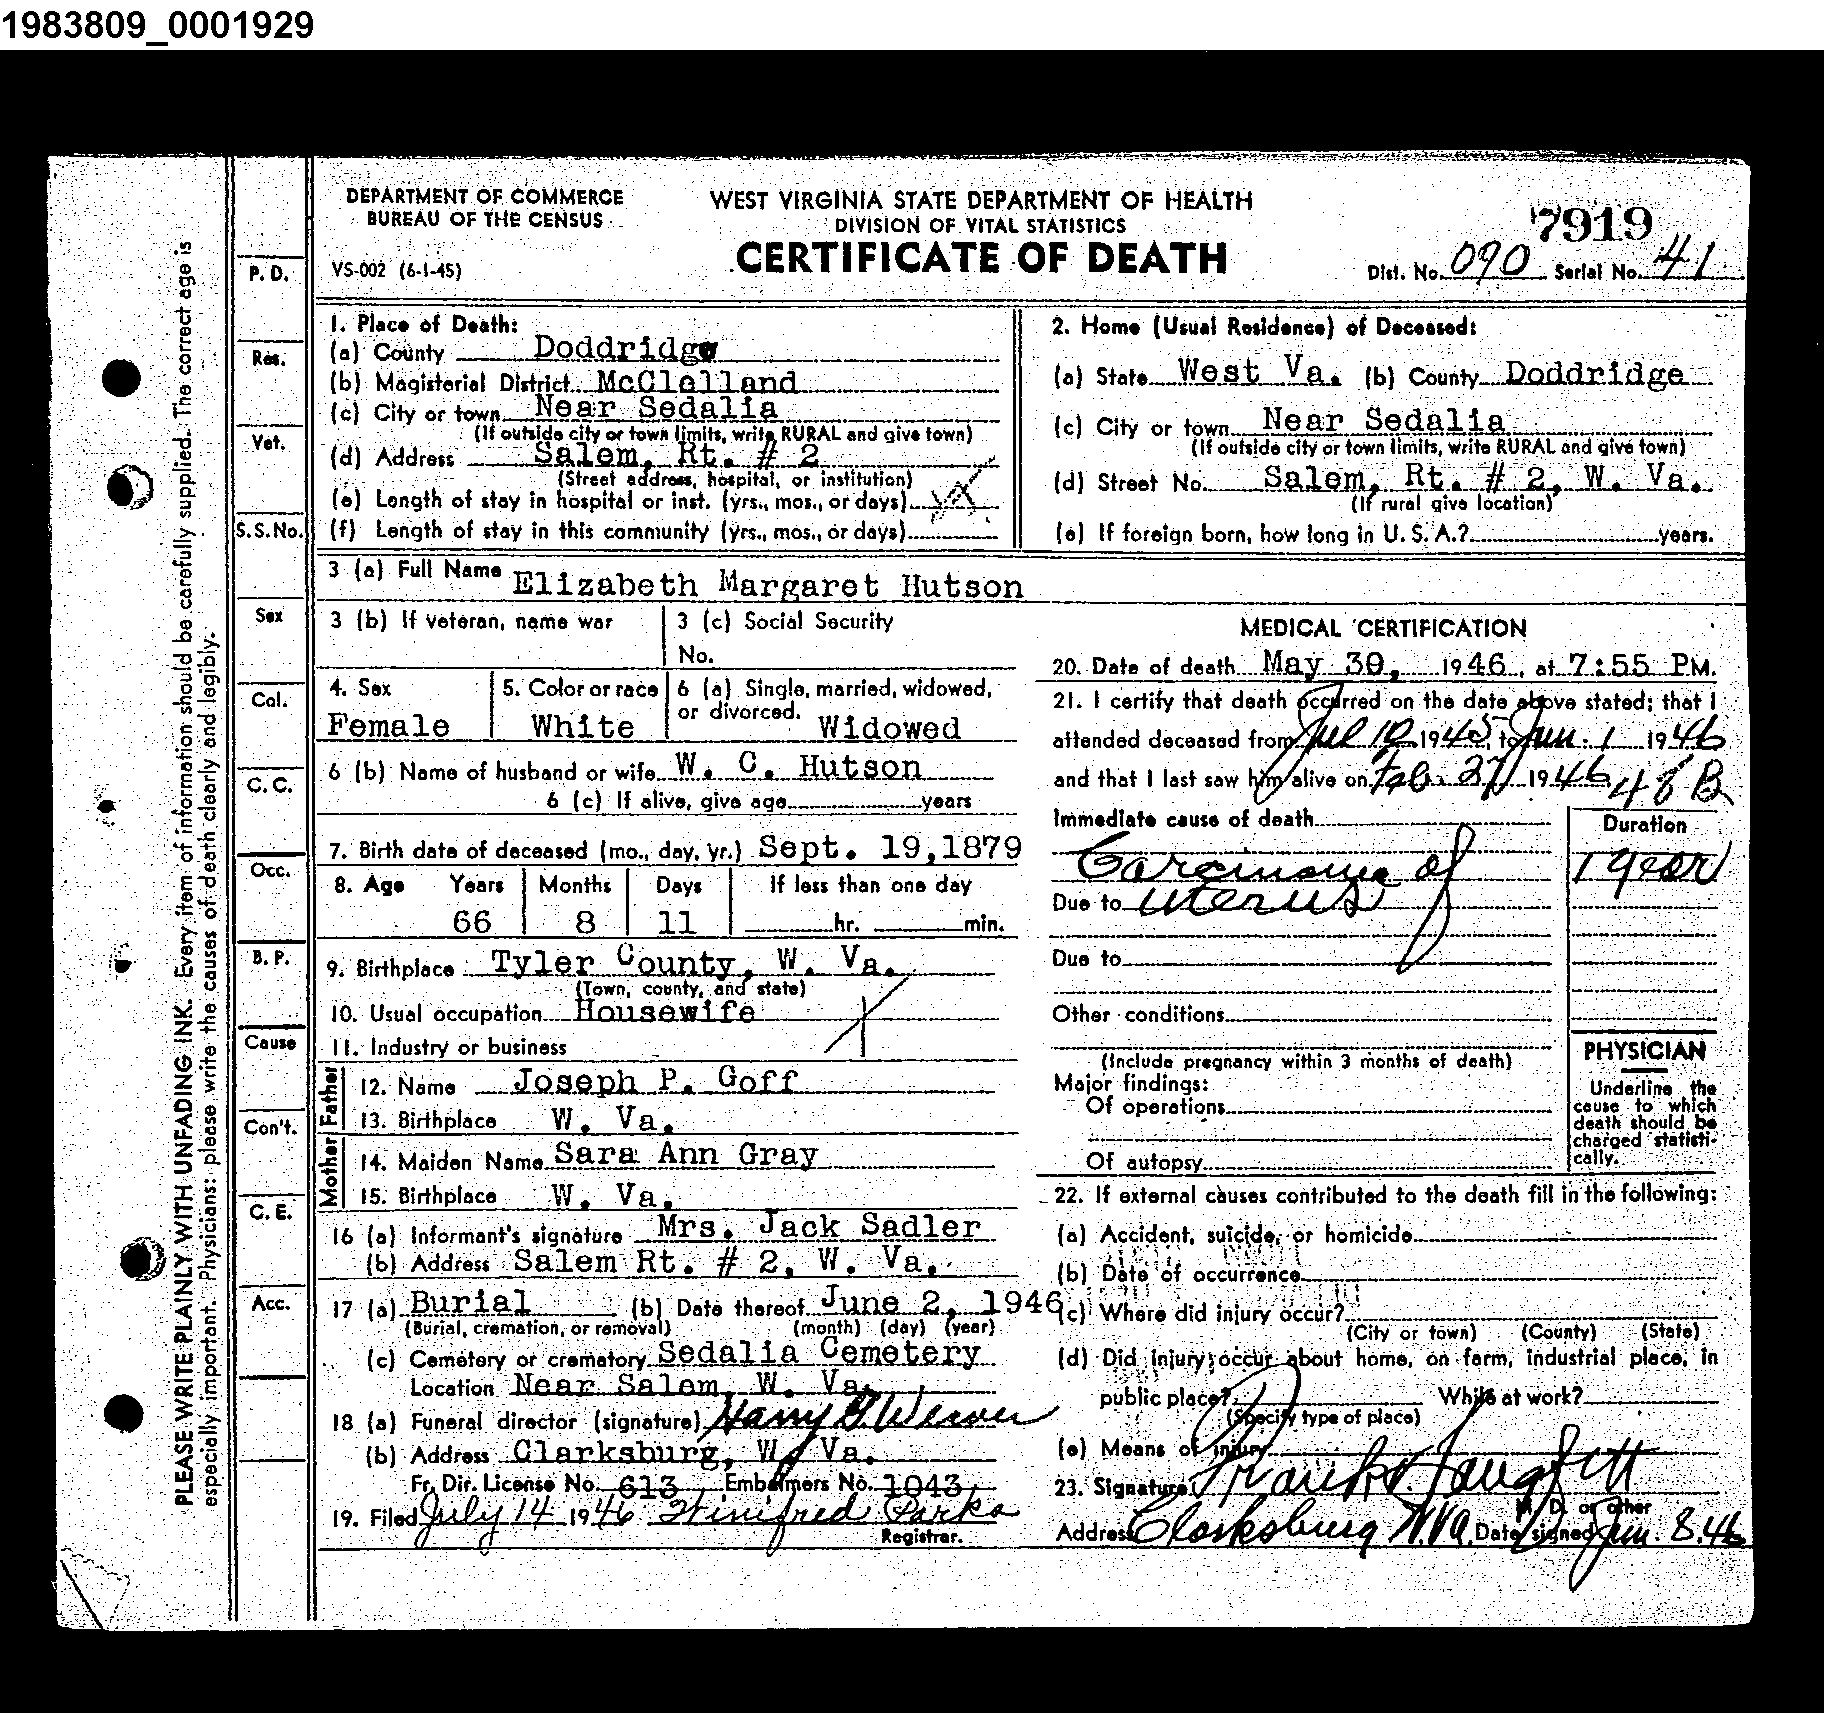 1983809_0001929
DEPARTMENT OF COMMERCE
BUREAU OF THE CENSUS
VS-002 (6-1-45)
WEST VIRGINIA STATE DEPARTMENT OF HEALTH
DIVISION OF VITAL STATISTICS
CERTIFICATE OF DEATH
7919
Dist. No. 090 Serial No. 41
PLEASE WRITE PLAINLY WITH UNFADING INK. Every item of information should be carefully supplied. The correct age is
especially important. Physicians: please write the causes of death clearly and legibly.
P. D.
Res.
Vet.
S.S.No.
Sex
Col.
C. C.
Occ.
B. P.
Cause
Con't.
C. E.
Acc.
1. Place of Death:
(a) County Doddridge
(b) Magisterial District McClelland
(c) City or town Near Sedalia
(If outside city or town limits, write RURAL and give town)
(d) Address Salem, Rt. # 2
(Street address, hospital, or institution)
(e) Length of stay in hospital or inst. (yrs., mos., or days)
(f) Length of stay in this community (yrs., mos., or days)
2. Home (Usual Residence) of Deceased:
(a) State West Va. (b) County Doddridge
(c) City or town Near Sedalia
(If outside city or town limits, write RURAL and give town)
(d) Street No. Salem, Rt. # 2, W. Va.
(If rural give location)
(e) If foreign born, how long in U. S. A.? years.
3 (a) Full Name Elizabeth Margaret Hutson
3 (b) If veteran, name war
3 (c) Social Security
No.
4. Sex
Female
5. Color or race
White
6 (a) Single, married, widowed,
or divorced. Widowed
6 (b) Name of husband or wife W. C. Hutson
6 (c) If alive, give age years
7. Birth date of deceased (mo., day, yr.) Sept. 19,1879
8. Age Years Months Days If less than one day
66 8 11 hr. min.
9. Birthplace Tyler County, W. Va.
(Town, county, and state)
10. Usual occupation Housewife
11. Industry or business
Father
12. Name Joseph P. Goff
13. Birthplace W. Va.
Mother
14. Maiden Name Sara Ann Gray
15. Birthplace W. Va.
16 (a) Informant's signature Mrs. Jack Sadler
(b) Address Salem Rt. # 2, W. Va.
17 (a) Burial (b) Date thereof June 2, 1946
(Burial, cremation, or removal) (month) (day) (year)
(c) Cemetery or crematory Sedalia Cemetery
Location Near Salem, W. Va.
18 (a) Funeral director (signature) Harry
(b) Address Clarksburg, W. Va.
Fr. Dir. License No. 613 Embalmers No. 1043
19. Filed July 14 1946 Winifred Parks
Registrar.
MEDICAL CERTIFICATION
20. Date of death May 30, 1946, at 7:55 PM.
21. I certify that death occurred on the date above stated; that I
attended deceased from Jul 10 1945, to Jun. 1 1946
and that I last saw him alive on Feb. 27 1946 48B
Immediate cause of death
Duration
Carcinoma of 1 year
Due to uterus
Due to
Other conditions
(Include pregnancy within 3 months of death)
Major findings:
Of operations
Of autopsy
PHYSICIAN
Underline the
cause to which
death should be
charged statisti-
cally.
22. If external causes contributed to the death fill in the following:
(a) Accident, suicide, or homicide
(b) Date of occurrence
(c) Where did injury occur?
(City or town) (County) (State)
(d) Did injury occur about home, on farm, industrial place, in
public place? While at work?
(Specify type of place)
(e) Means of injury
23. Signature Frank
M. D. or other
Address Clarksburg W.Va. Date signed Jun. 8.46